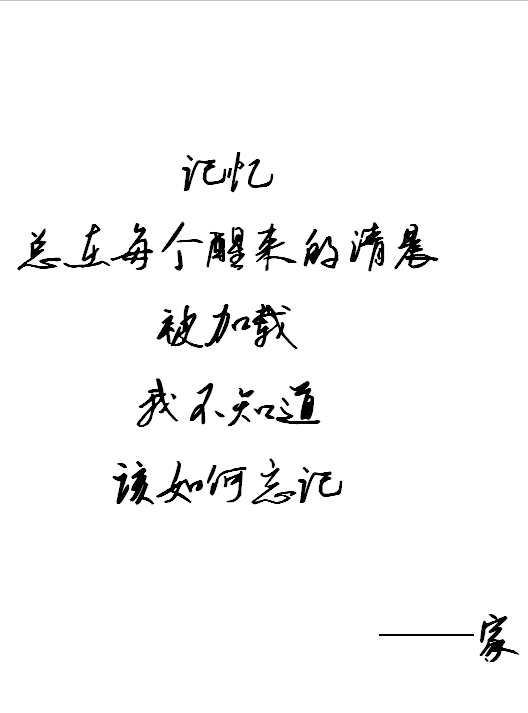 记忆
总在每个醒来的清晨
被加载
我不知道
该如何忘记
——家